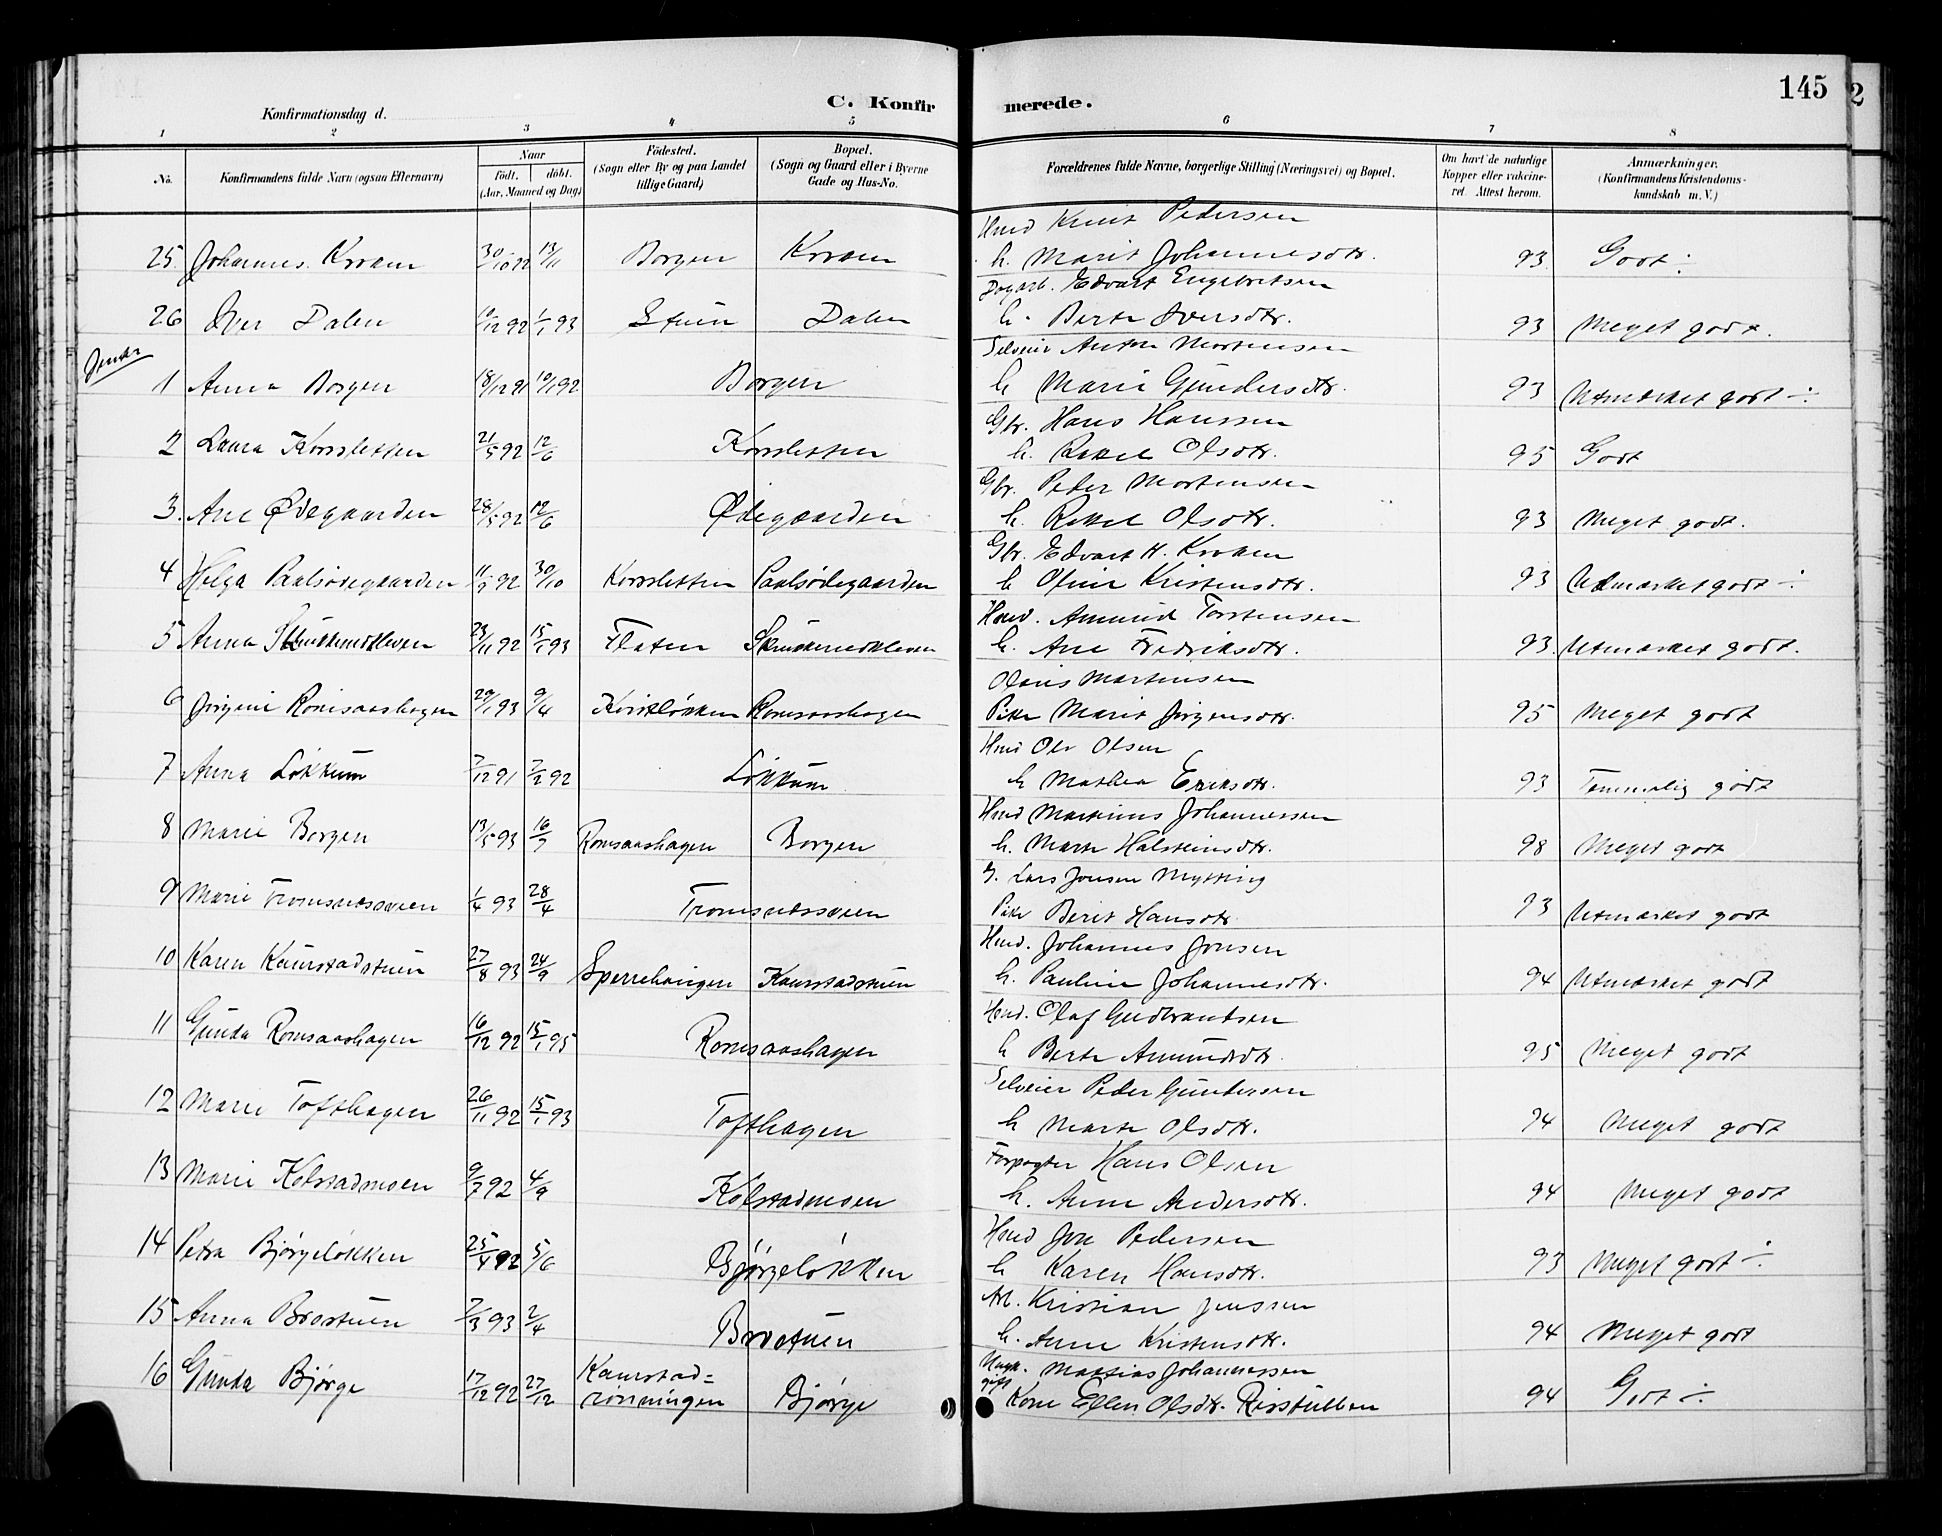 145
2
C. Konfirmerede.
Konfirmationsdag d.
1 2 3 4 5 6 7 8
No. Konfirmandens fulde Navn (ogsaa Efternavn) Naar født. døbt. (Aar, Maaned og Dag) Fødested. (Sogn eller By og paa Landet tillige Gaard) Bopæl. (Sogn og Gaard eller i Byerne Gade og Hus-No. Forældrenes fulde Navne, borgerlige Stilling (Næringsvei) og Bopæl. Om havt de naturlige Kopper eller vakcineret. Attest herom. Anmærkninger. (Konfirmandens Kristendomskundskab m. V.)
Hmd Knut Pedersen
25. Johannes Kroken 30/10 92 13/11 Borgen Kroken h. Marit Johannesdtr. 93 Godt ÷
Dagarb. Edvart Engebretsen
26 Iver Dalen 92 1/1 93 Stuen Dalen h. Berte Iversdtr. 93 Meget godt.
Jenter
Selveier Anton Mortensen
1 Anna Borgen 18/12 91 10/1 92 Borgen h Marie Gundersdtr. 93 Utmærket godt ÷
Gbr. Hans Hanssen
2 Laura Korsletten 21/5 92 12/6 Korsletten h. Rakel Olsdtr. 95 Godt
Gbr. Peder Mortensen
3. Ane Ødegaarden 28/5 92 12/6 Ødegaarden h. Rakel Olsdtr. 93 Meget godt.
Gbr. Edvart H. Kroken
4 Helga Paalsødegaarden 11/9 92 30/10 Korsletten Paalsødegaarden h Oline Kristensdtr. 93 Utmærket godt ÷
Hmd. Amund Torstensen
5 Anna Skukkemokleven 23/11 92 15/1 93 Flaten Skrukkemokleven h. Ane Fredriksdtr. 93. Utmærket godt.
Olaus Martinsen
6 Jørgine Romsaashagen 29/1 93 9/4 Korsløkken Romsaashagen Pike Marit Jørgensdtr. 95 Meget godt
Hmd Ole Olsen
7 Anna Løkkum 7/12 91 7/2 92 Løkkum h Mathea Eriksdtr. 93 Temmelig godt
Hmd Martinus Johannessen
8 Marie Borgen 13/5 93 16/7 Romsaashagen Borgen h. Marte Halsteinsdtr. 98 Meget godt
G. Lars Jonsen Mytting
9 Marie Tromsnessveen 1/4 93 28/4 Tromsnessveen Pike Berit Hansdtr. 93 Utmærket godt
Hmd. Johannes Jonsen
10 Karen Kaurstadstuen 27/8 93 24/9 Sperrehaugen Kaurstadstuen h. Pauline Johannesdtr. 94 Utmærket godt
Hmd. Olaf Gudbrantsen
11 Gunda Romsaashagen 16/12 92 15/1 95 Romsaashagen h Berte Amundsdtr. 95 Meget godt
Selveier Peder Gundersen
12 Marie Tofthagen 26/11 92 15/1 93 Tofthagen h Marte Olsdtr. 94 Meget godt
Forpagter Hans Olsen
13 Marie Kolstadmoen 9/7 92 4/9 Kolstadmoen h. Anne Andersdtr. 94 Meget godt
Hmd Jon Pedersen
14 Petra Bjørgeløkken 25/4 92 5/6 Bjørgeløkken h Karen Hansdtr. 93 Meget godt ÷
Arb. Kristian Jenssen
15 Anna Brostuen 7/3 93 2/4 Brostuen h. Anne Kristensdtr. 94 Meget godt
Ungk. Mattias Johannessen
16 Gunda Bjørge 17/12 92 27/12 Kaurstad=
rønningen Bjørge gift Kone Ellen Olsdtr. 94 Godt ÷